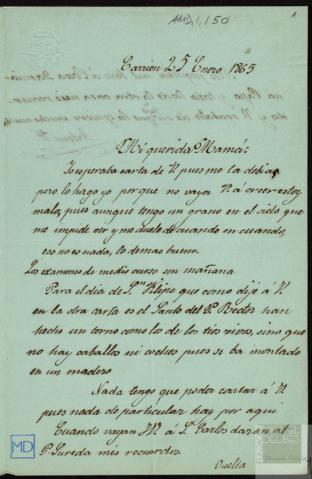 AMD, I, 150
1
Carrion 25 Enero 1865
Mi querida Mamá:
Yo esperaba carta de V. pues me la debia,
pero lo hago yo porque no vaya V. á creer estoy
malo, pues aunque tengo un grano en el oido que
me impide oir y me duele de cuando en cuando,
eso no es nada, lo demas bueno.
Los examenes de medio curso son mañana
Para el dia de Sn. que como dije á V.
en la otra carta es el Santo del P. Rector han
hecho un torno como los de los tios vivos, sino que
no hay caballos ni coches pues se ba montado
en un madero
Nada tengo que poder contar á V.
pues nada de particular hay por aqui
Cuando vayan VV. á Sn. Carlos darán al
P. Sureda mis recuerdos.
Vuelta
MD